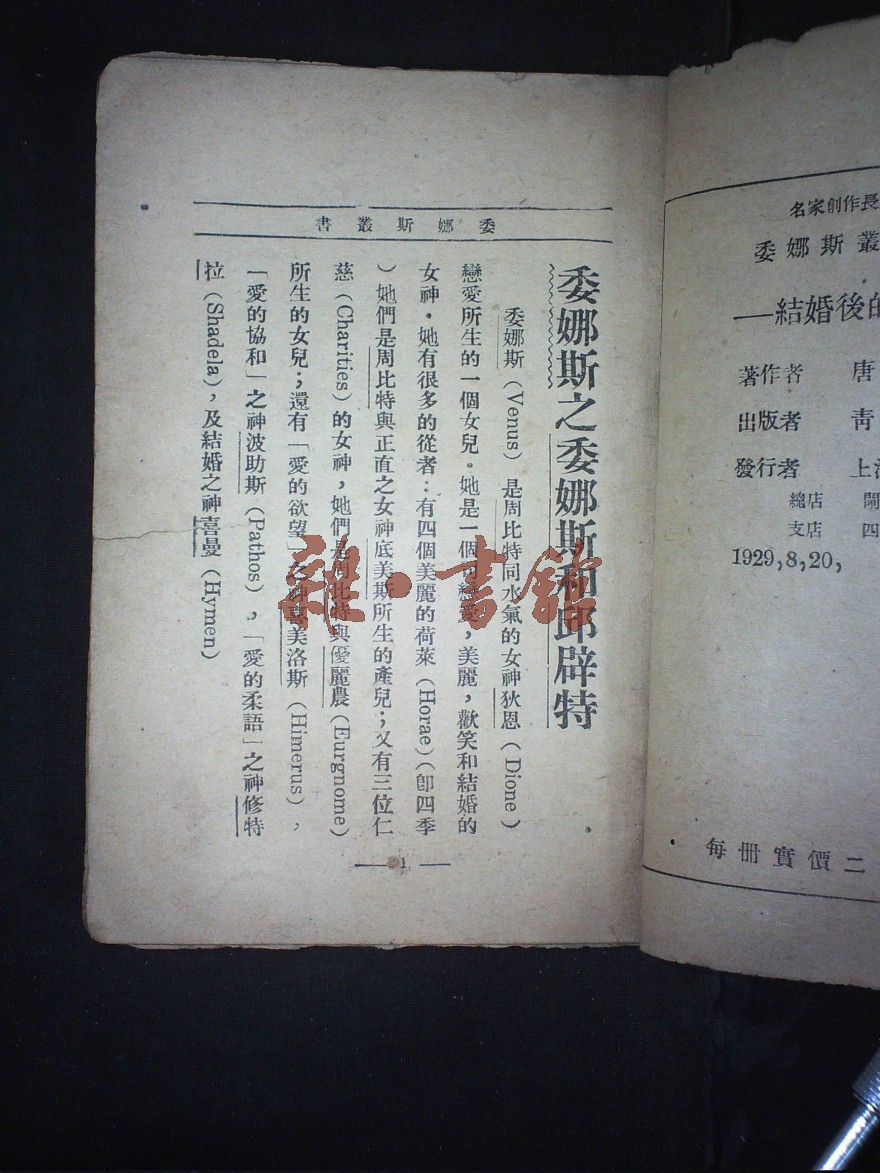 委娜斯叢書
委娜斯之委娜斯和邱辟特
委娜斯（Venus）是周比特同水氣的女神狄恩（Dione）
戀愛所生的一個女兒。她是一個司戀愛，美麗，歡笑和結婚的
女神。她有很多的從者：有四個美麗的荷萊（Horae）（卽四季
）她們是周比特與正直之女神底美斯所生的產兒；又有三位仁
慈（Charities）的女神，她們是周比特與優麗農（Eurgnome）
所生的女兒；還有「愛的欲望」之神喜美洛斯（Himerus），
「愛的協和」之神波助斯（Pathos），「愛的柔語」之神修特
拉（Shadela），及結婚之神喜曼（Hymen）
— 1 —
名家創作長
委娜斯叢
—結婚後的
著作者 唐
出版者 靑
發行者 上海
總店 開
支店 四
1929,8,20,
每冊實價二
雜·書館